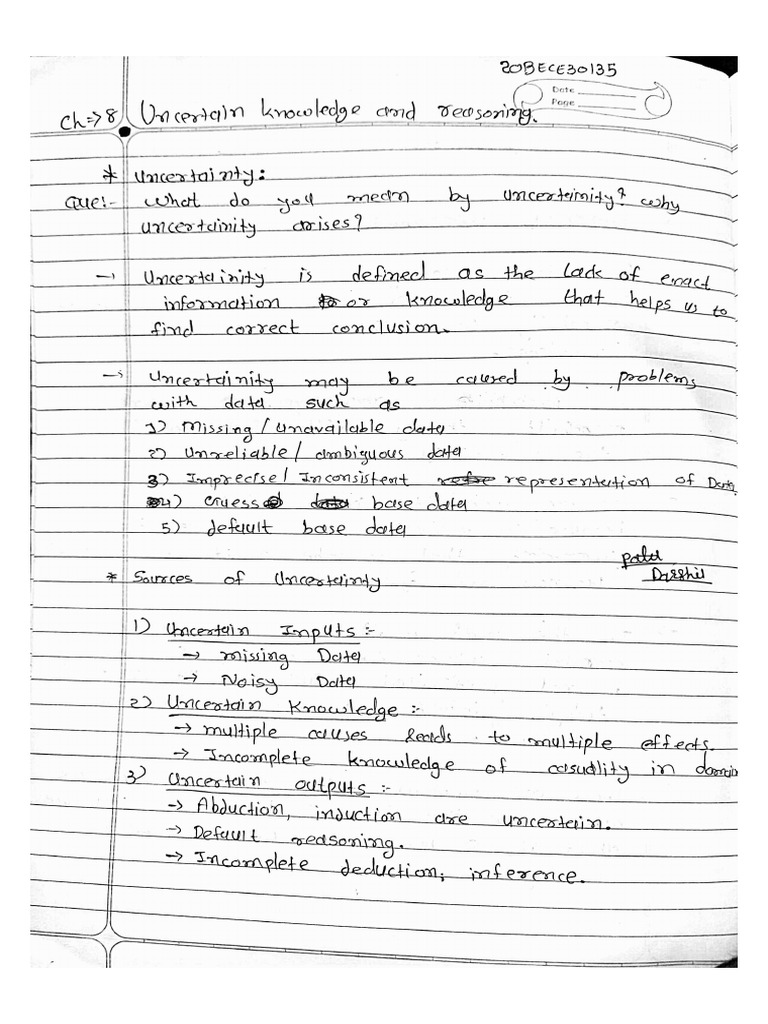 20BECE30135
Date
Page
Ch=>8 Uncertain knowledge and reasoning.
* uncertainty:
Que:- what do you mean by uncertainity? why
uncertainity arises?
→ Uncertainity is defined as the lack of exact
information or knowledge that helps us to
find correct conclusion.
→ Uncertainity may be caused by problems
with data such as
1) Missing/unavailable data
2) Unreliable/ambiguous data
3) Imprecise/Inconsistent representation of Data.
4) Guess base data
5) default base data
Patel
Darshil
* Sources of Uncertainty
1) Uncertain Inputs :-
→ missing Data
→ Noisy Data
2) Uncertain Knowledge :-
→ multiple causes leads to multiple effects.
→ Incomplete knowledge of casuality in domain
3) Uncertain outputs :-
→ Abduction, induction are uncertain.
→ Default reasoning.
→ Incomplete deduction, inference.